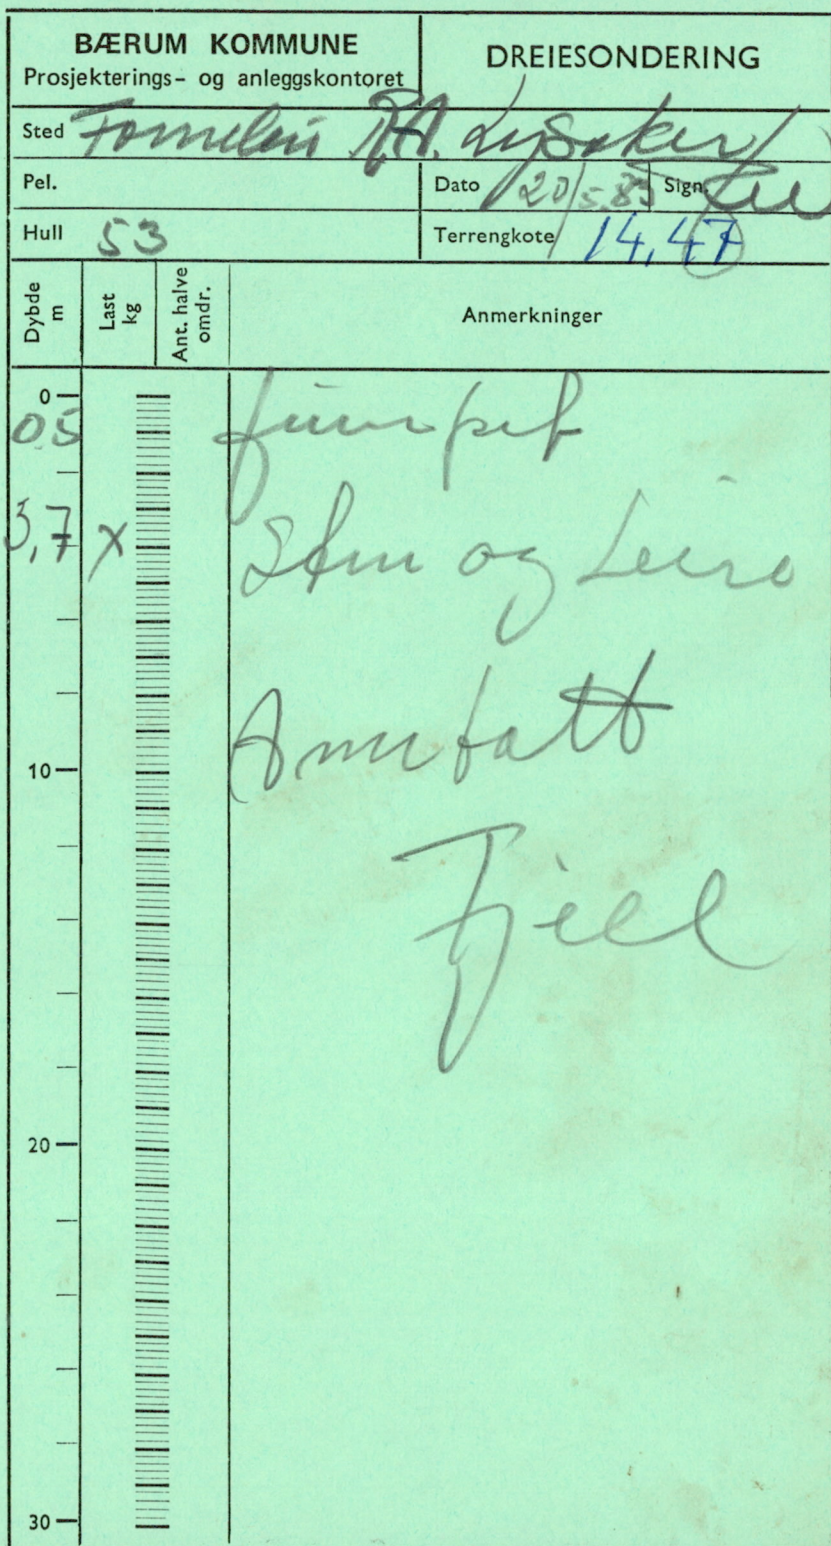 BÆRUM KOMMUNE
Prosjekterings- og anleggskontoret
DREIESONDERING
Sted Fornebu R.A. Lysaker
Pel.
Dato 20/5.83 Sign.
Hull 53
Terrengkote 14,47
Dybde m
Last kg
Ant. halve omdr.
Anmerkninger
0
05
3,7 x
Sten og Leire
Antatt
10
Fjell
20
30